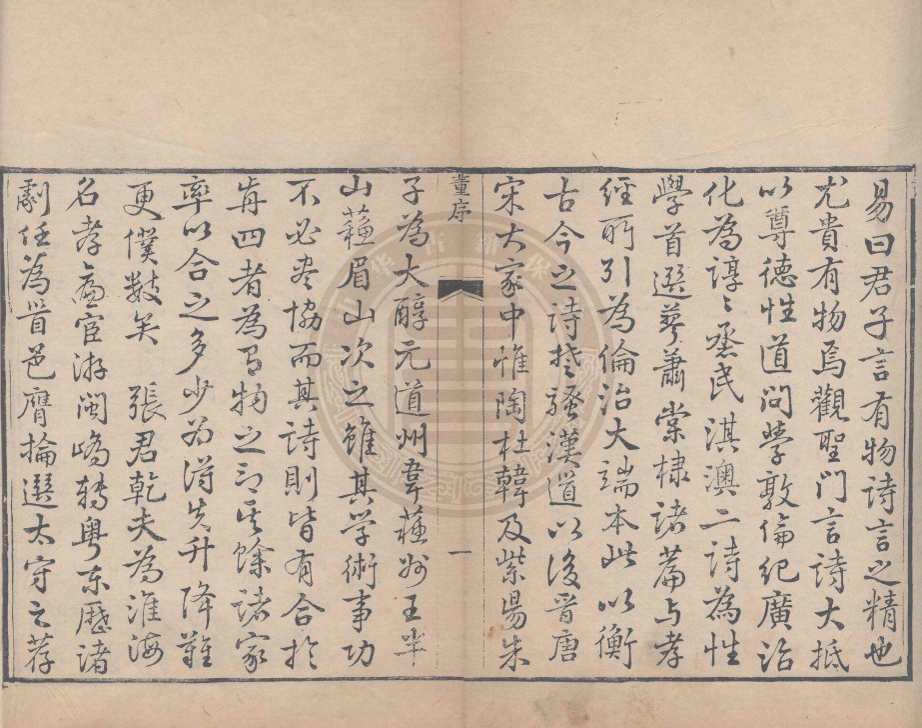 易曰君子言有物詩言之精也
尤貴有物焉觀聖門言詩大抵
以尊德性道問學敦倫紀廣治
化為諄〻烝民淇澳二詩為性
學首選蓼蕭棠棣諸篇与孝
經所引為倫治大端本此以衡
古今之詩楚騷漢道以後晉唐
宋大家中惟陶杜韓及紫陽朱
董序
一
子為大醇元道州韋蘇州王半
山蘇眉山次之雖其學術事功
不必盡協而其詩則皆有合於
前四者為有物之言其餘諸家
率以合之多少為得失升降難
更僕數矣 張君乾夫為淮海
名孝廉宦游閩嶠轉粵東歷諸
劇任為晉邑膺掄選太守之荐